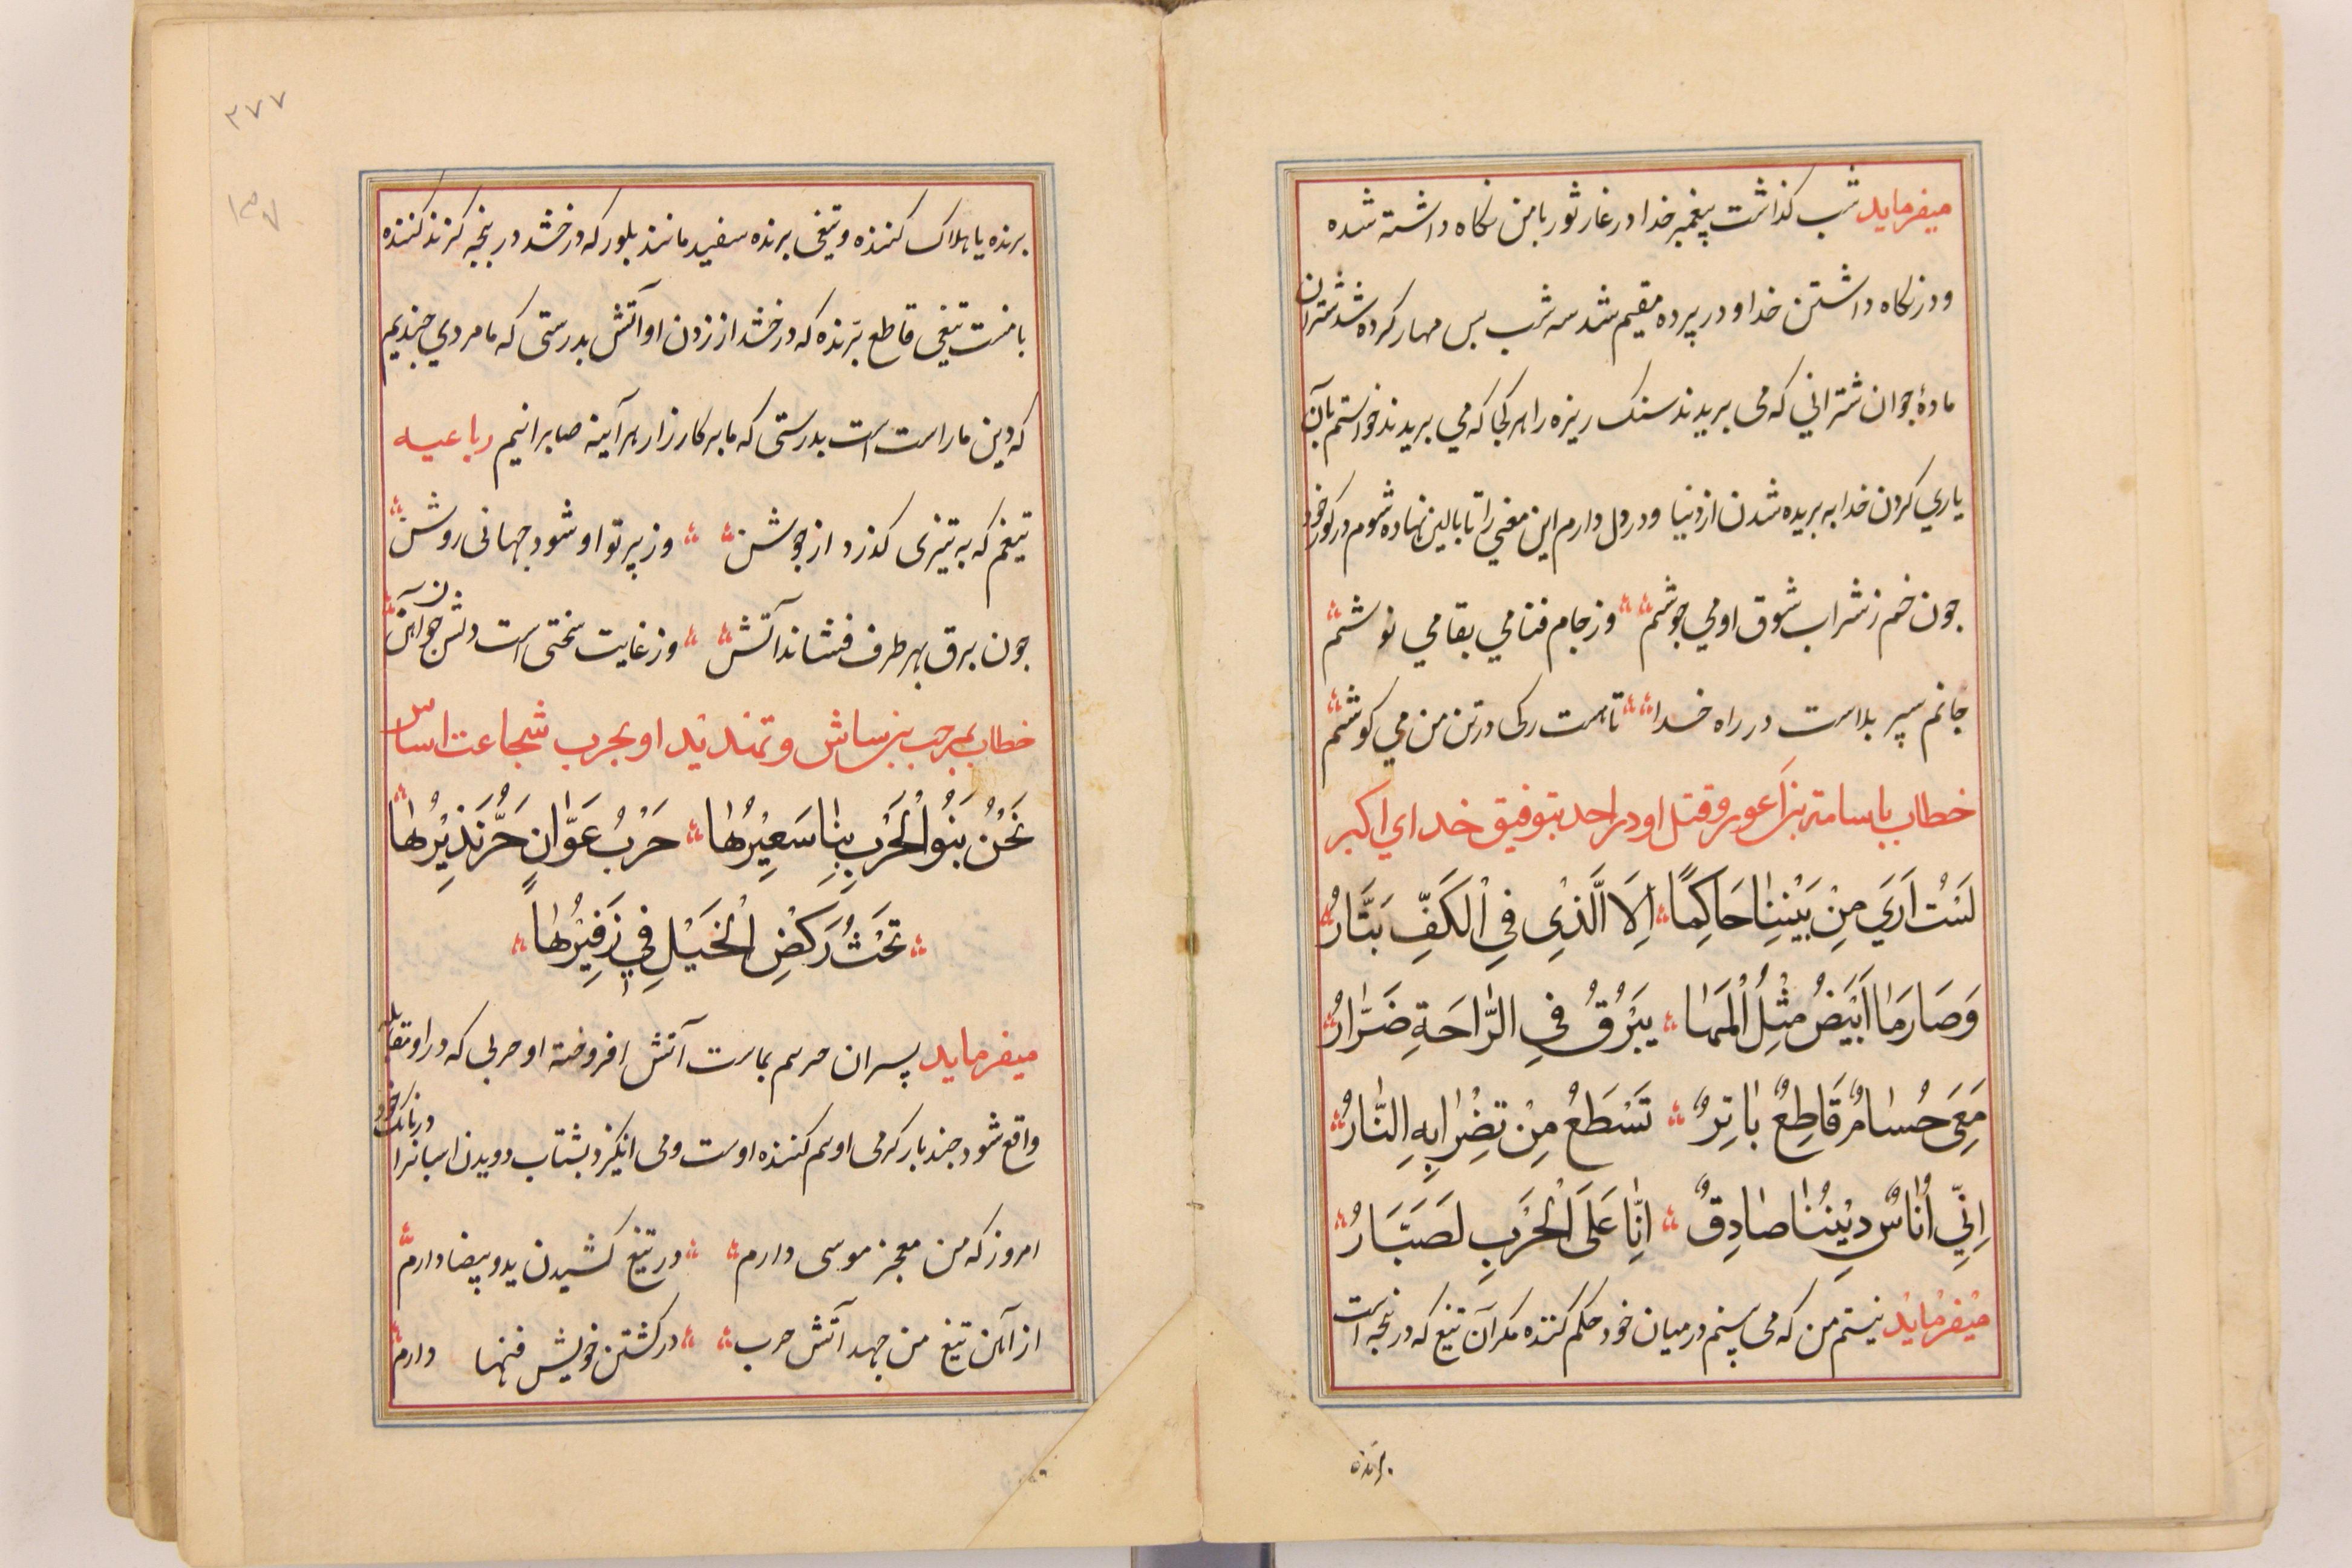 میفرماید شب کذاشت پیغمبر خدا در غار ثور با من نکاه داشته شده
و در نکاه داشتن خدا و در پرده مقیم شد سه شب بس مهار کرده شد شتران
مادۀ جوان شترانی که می بریدند سنک ریزه را هر کجا که می بریدند خواستم بآن
یاری کردن خدا به بریده شدن از دنیا و در دل دارم این معنی را تا بالین نهاده شوم در کور خود
جون خم ز شراب شوق او می جوشم وز جام فنا می بقا می نوشم
جانم سپر بلاست در راه خدا تا هست رکی در تن من می کوشم
خطاب باسامة بن اعور و قتل او در احد بتوفیق خدای اکبر
لَسْتُ اَرَي مِنْ بَيْنِنٰا حَاكِمًا اِلَّا الَّذِي فِي الْكَفِّ بَتَّارُ
وَصَارِمًا اَبْيَضُ مِثْلُ الْمَهٰا يَبْرُقُ فِي الرَّاحَةِ ضَرَّارُ
مَعِيَ حُسٰامٌ قَاطِعٌ بٰاتِرٌ تَسْطَعُ مِنْ تَضْرٰابِهِ النَّارُ
اِنّٖي اُنٰاسٌ دِيْنُنٰا صٰادِقٌ اِنَّا عَلَى الْحَرْبِ لَصَبَّارُ
میفرماید نیستم من که می بینم در میان خود حکم کننده مکر آن تیغ که در پنجه است
برنده
٢٧٧
برنده یا هلاک کننده و تیغی برنده سفید مانند بلور که درخشد در پنجه کزند کننده
با منست تیغی قاطع برّنده که درخشد از زدن او آتش بدرستی که ما مردی جندیم
که دین ما راست است بدرستی که ما بر کارزار هر آینه صابرانیم رباعیه
تیغم که به تیزی کذرد از جوشن وز پرتو او شود جهانی روشن
جون برق بهر طرف فشاند آتش وز غایت سختی است دلش جون آهن
خطاب بمرحب بن شاش و تهدید او بحرب شجاعت اساس
نَحْنُ بَنُوا الْحَرْبِ بِنٰا سَعِيْرُهٰا حَرْبُ عَوَّانٍ حَرَّ نَذِيْرُهٰا
تَحُثُّ رَكْضِ الْخَيْلِ فِي زَفِيْرُهٰا
میفرماید پسران حربیم بماست آتش افروخته او حربی که در او مقابله
واقع شود جند بار کرمی او بیم کننده اوست و می انکیزد بشتاب دویدن اسبانرا در بانک خود
امروز که من معجز موسی دارم در تیغ کشیدن ید و بیضا دارم
از آهن تیغ من جهد آتش حرب در کشتن خویش فنها دارم